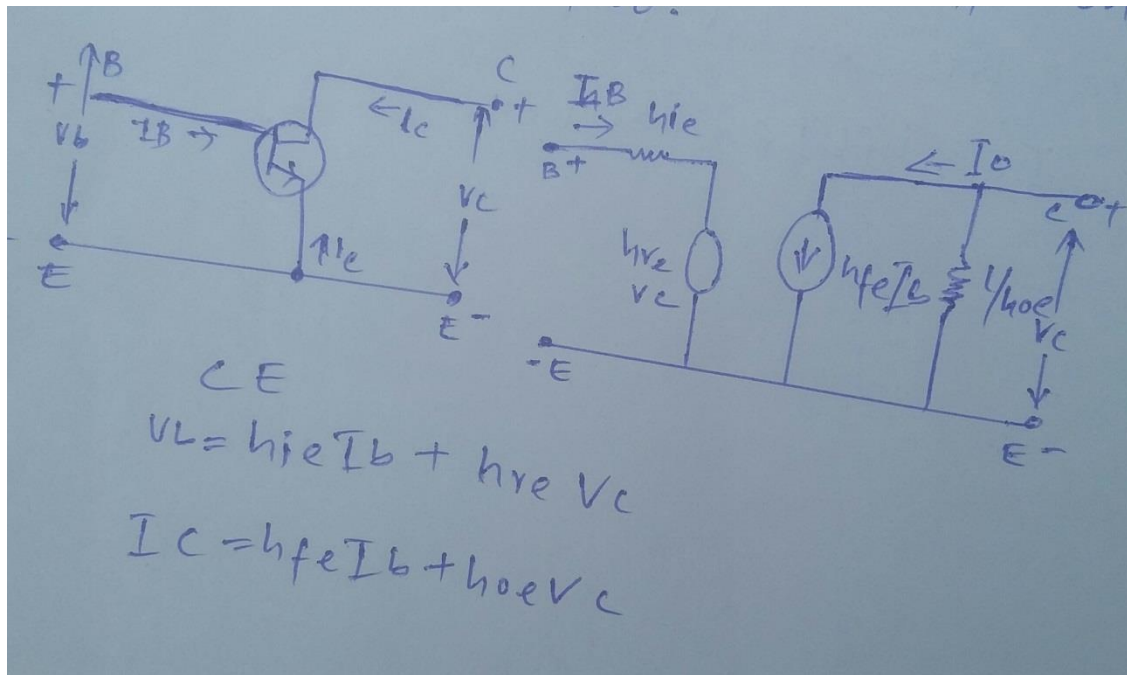 B
+
Vb
IB →
E
← Ic
C
+
Vc
↑ Ie
E -
CE
IB
→
hie
B+
hre
Vc
- E
hfeIb
← Io
C +
1/hoe
Vc
E -
VL = hieIb + hre Vc
IC = hfeIb + hoeVc